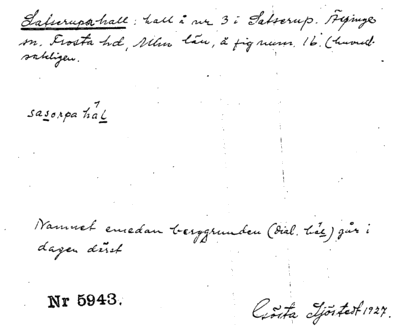 Satserupahall: hall å nr 3 i Satserup. Äspinge
sn. Frosta hd, Mlm län, å fig num. 16. (huvud-
sakligen.
sasorpa hál
Namnet emedan berggrunden (dial. hál) går i
dagen därst
Nr 5943.
Gösta Sjöstedt 1927.